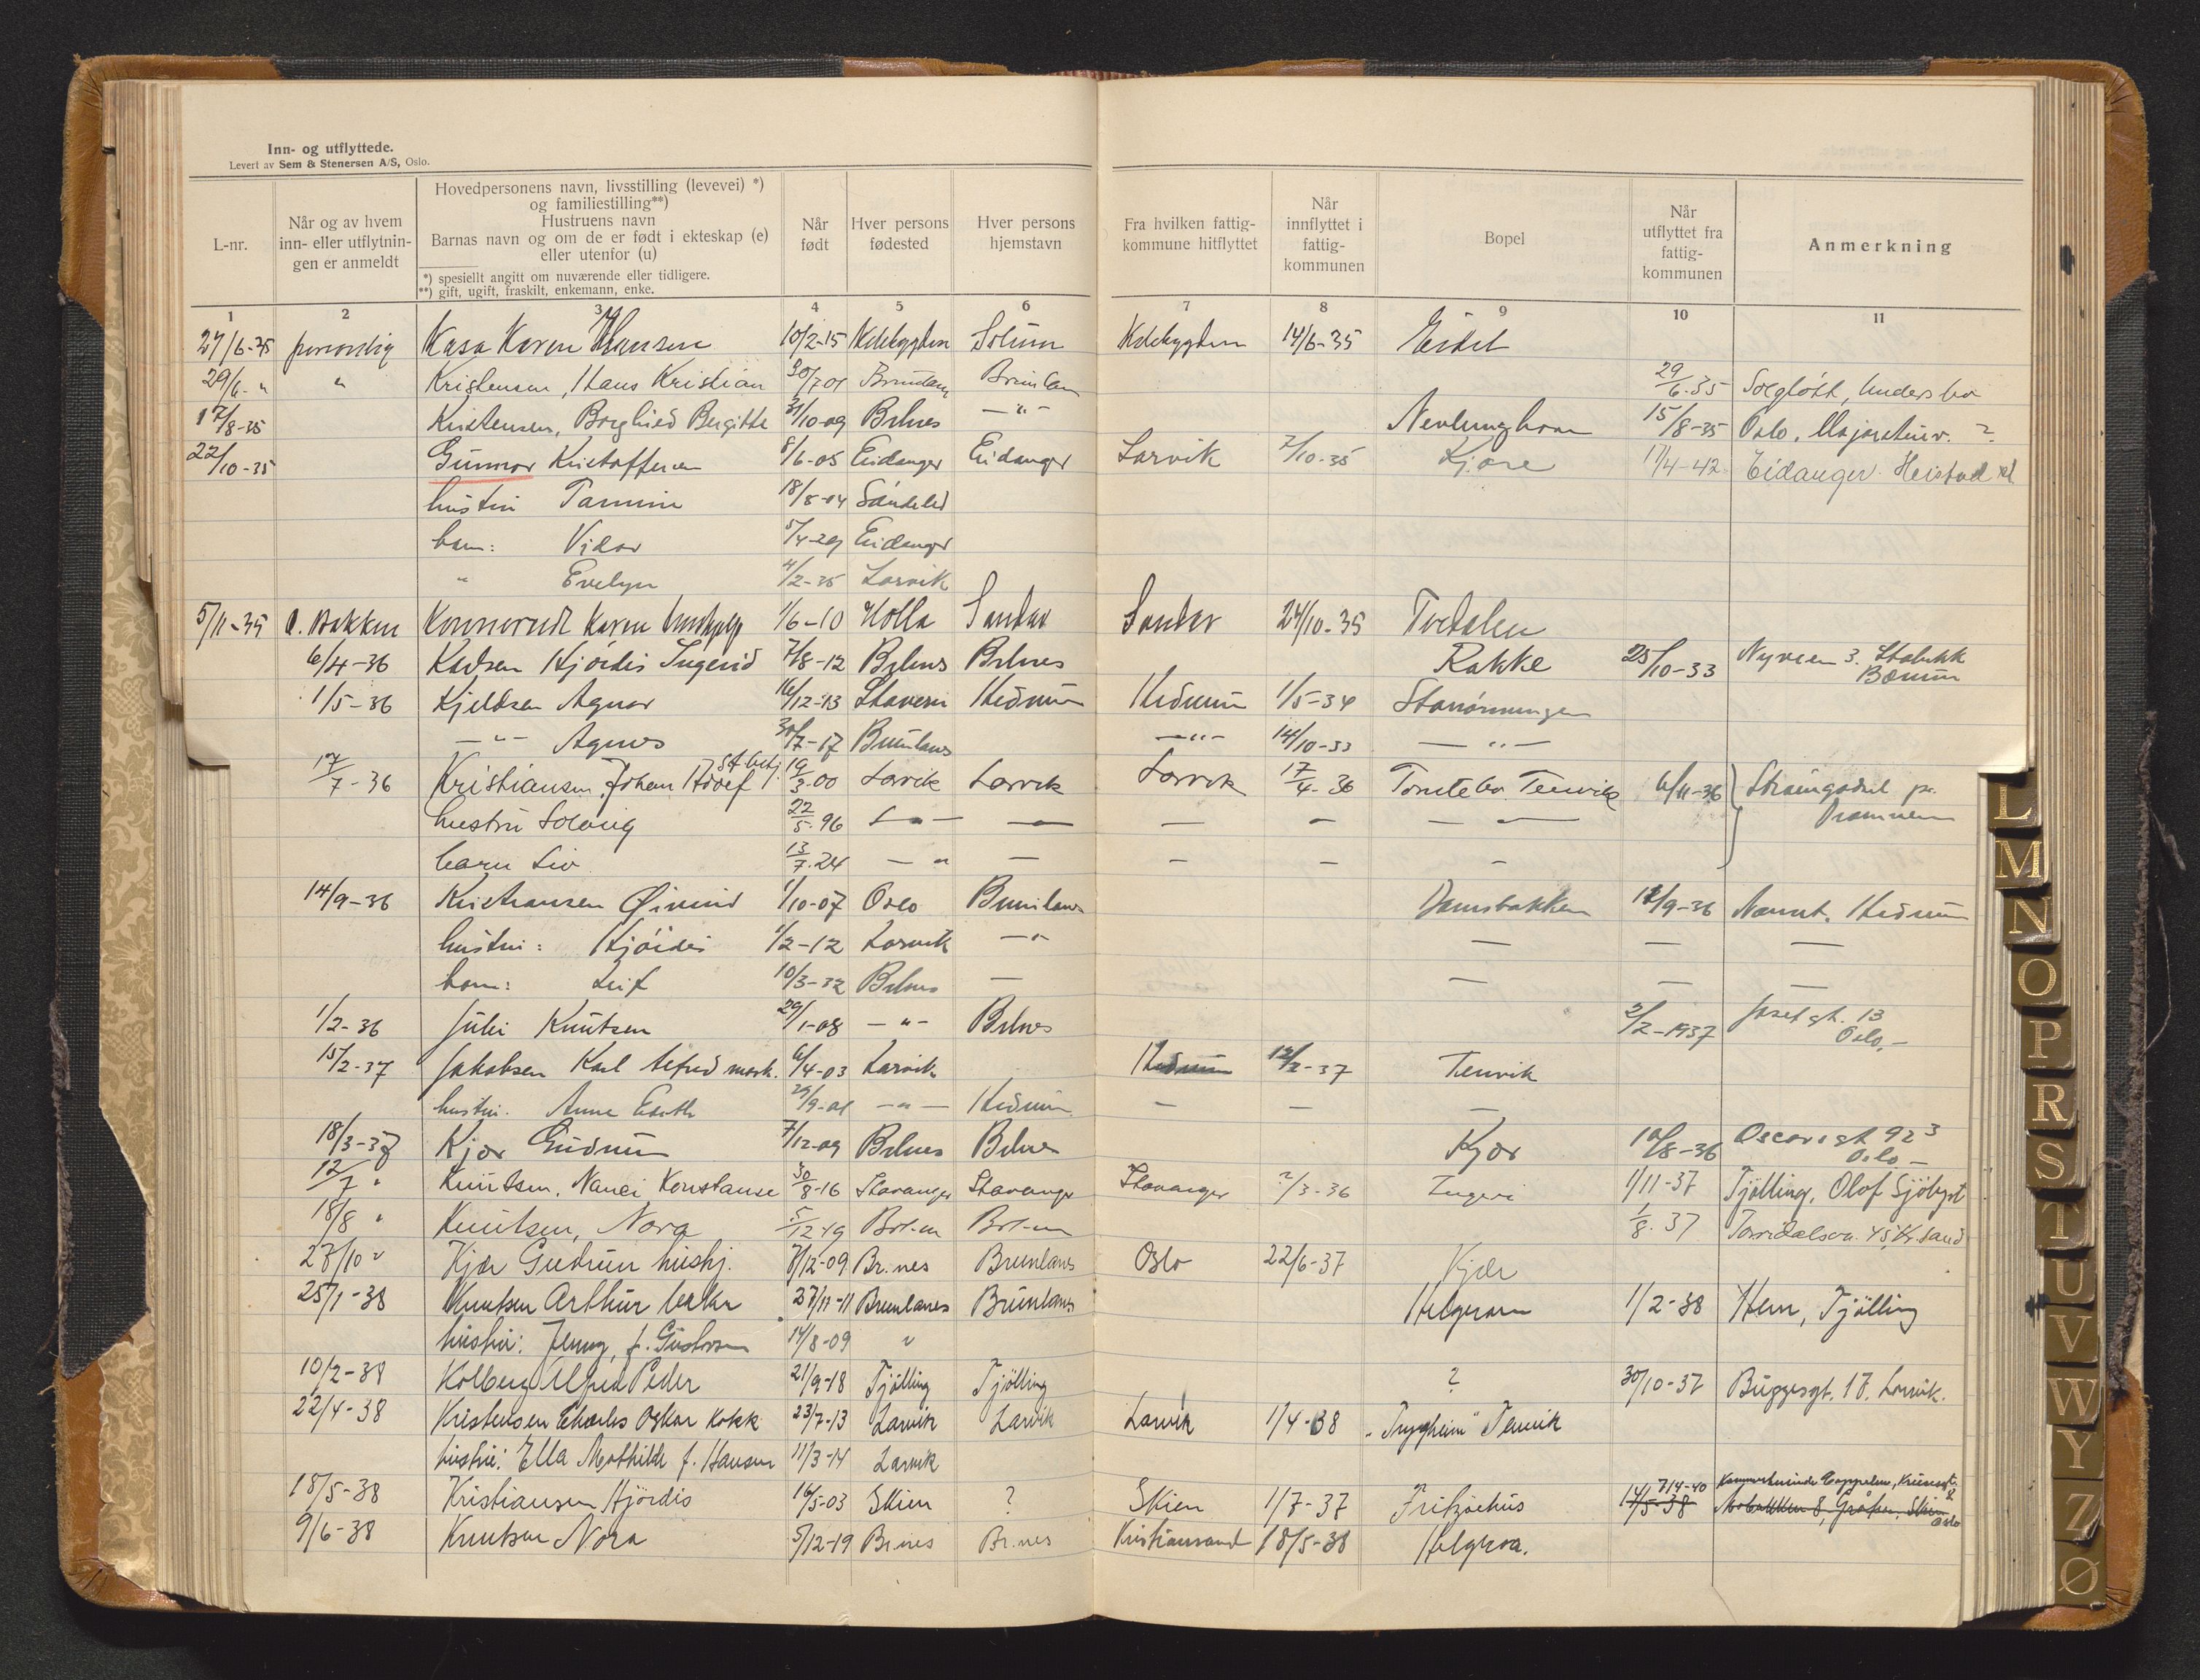 Inn- og utflyttede.
Levert av Sem & Stenersen A/S, Oslo.
L-nr.
Når og av hvem inn- eller utflytnin-gen er anmeldt
Hovedpersonens navn, livsstilling (levevei) *)
og familiestilling**)
Hustruens navn
Barnas navn og om de er født i ekteskap (e)
eller utenfor (u)
*) spesiellt angitt om nuværende eller tidligere.
**) gift, ugift, fraskilt, enkemann, enke.
Når født
Hver persons fødested
Hver persons hjemstavn
Fra hvilken fattig-kommune hitflyttet
Når innflyttet i fattig-kommunen
Bopel
Når utflyttet fra fattig-kommunen
Anmerkning
1 2 3 4 5 6 7 8 9 10 11
27/6-35 personlig Kasa Karen Hansen 10/2-15 Solum 14/6-35 Eidet
29/6- " " Kristensen, Hans Kristian 30/7 01 Brunlanes 29/6.35 Solgløtt,
17/8-35 Kristensen, Borghild Bergitte 31/10-09 Brlnes — " — Nevlunghavn 15/8-35 Oslo, Majorstuv. ?
22/10-35 Gunnar Kristoffersen 8/6-05 Eidanger Eidanger Larvik 7/10-35 Kjøre 17/4-42 Eidanger Heistad
hustru 18/8-04
barn: Vidar 5/4-29 Eidanger
" Evelyn 4/2-35 Larvik
5/11-35 O. Bakken Karen hushjelp 1/6-10 Holla Sandar Sandar 24/10-35 Tvedalen
6/4-36 Karlsen Hjørdis Ingerid 7/8-12 Brlnes Brlnes Rakke 25/10-33 Nyveien 3. Stabekk
Bærum
1/5-36 Kjeldsen Agnar 16/12-13 Stavern Hedrum Hedrum 1/5-34
— " — Agnes 30/7-17 Brunlanes — " — 14/10-33 — " —
17/7-36 Kristiansen, Johan Adolf 19/3-00 Larvik Larvik Larvik 17/4-36 Tenvik 6/11-36 pr.
Drammen
hustru Solveig 22/5-96 — " — — — — —
barn Liv 13/7-24 — " — — — —
14/9-36 Kristiansen Øivind 1/10-07 Oslo Brunlanes Damsbakken 14/9-36 Hedrum
hustru: Hjördis 1/2-12 Larvik — " — — —
barn: Leif 10/3-32 Brlnes — — — —
1/2-36 Juli Knutsen 29/1-08 — " — Brlnes 2/2-1937 Josefgt. 13
Oslo.—
15/2-37 Jakobsen Karl Alfred mask. 6/4-03 Larvik Hedrum 12/2-37 Tenvik
hustru. Anne Edith 29/9-01 — " — Hedrum — — —
18/3-37 Kjær Gudrun 7/12-09 Brlnes Brlnes Kjær 10/8-36 Oscarsgt 92 3
Oslo —
12/7 " Knutsen, Nanci Konstanse 30/8-16 Stavanger Stavanger Stavanger 2/3-36 1/11-37 Tjølling, Olof Sjøqvist
18/8 " Knutsen, Nora 5/12-19 Brl-n Brl-n 1/8.37 Torridalsv. 45, Kr.sand
27/10 " Kjær Gudrun hushj. 7/12-09 Br.nes Brunlanes Oslo 22/6-37 Kjær
25/1-38 Knutsen Arthur 27/11-11 Brunlanes Brunlanes Helgeroa 1/2-38 Hem, Tjølling
hustru: Jenny, f. Gustavsen 14/8-09 "
10/2-38 Kolberg Alfred Peder 21/9-18 Tjölling Tjölling ? 30/10-37 Büggesgt. 18. Larvik.
22/4-38 Kristensen Charles Oskar kokk 23/7-13 Larvik Larvik Larvik 1/4-38 "Trygheim" Tenvik
hustru: Ella Mathilde f. Hansen 11/3-14 Larvik
18/5-38 Kristiansen Hjördis 16/5-03 Skien ? Skien 1/7-37 Fritzøehus 14/5-38 7/4-40 Kammerherrinde Cappelen,
Mobakken 8, Gråten, Skien Oslo
9/6-38 Knutsen Nora 5/12-19 Br.nes Br.nes Kristiansand 18/5-38 Helgeroa.
L
M
N
O
P
R
S
T
U
V
W
Y
Z
Ø